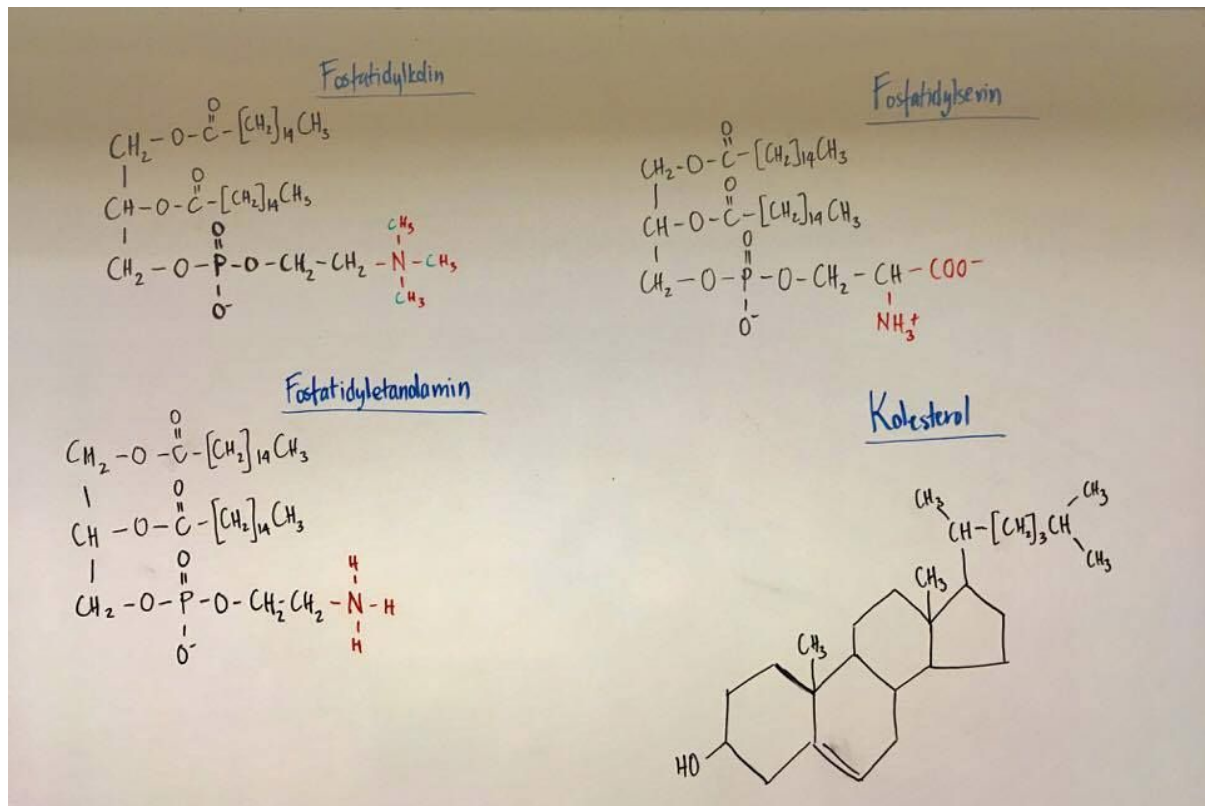 Fosfatidylkolin
O
CH₂-O-C-[CH₂]₁₄CH₃
O
CH-O-C-[CH₂]₁₄CH₃
O CH₃
CH₂-O-P-O-CH₂-CH₂-N-CH₃
O⁻ CH₃
Fosfatidylserin
O
CH₂-O-C-[CH₂]₁₄CH₃
O
CH-O-C-[CH₂]₁₄CH₃
O
CH₂-O-P-O-CH₂-CH-COO⁻
O⁻ NH₃⁺
Fosfatidyletanolamin
O
CH₂-O-C-[CH₂]₁₄CH₃
O
CH-O-C-[CH₂]₁₄CH₃
O H
CH₂-O-P-O-CH₂CH₂-N-H
O⁻ H
Kolesterol
CH₃ CH₃
CH-[CH₂]₃CH
CH₃ CH₃
CH₃
HO